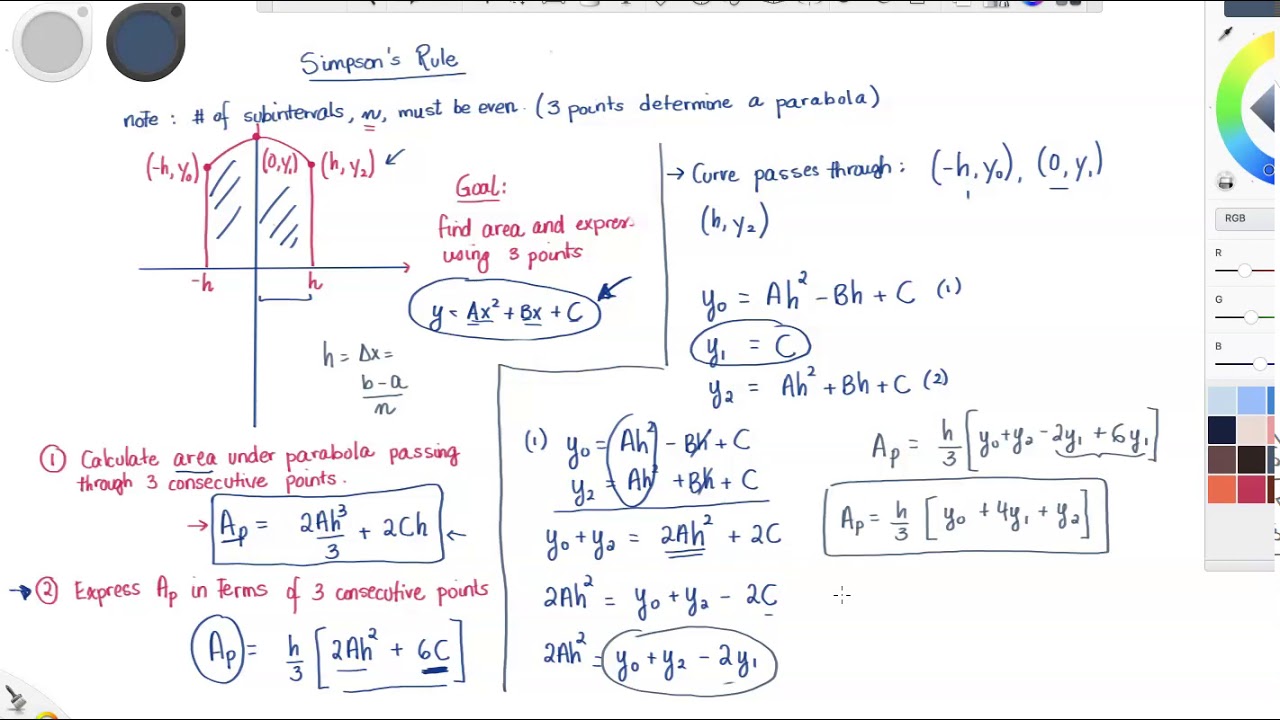 Simpson's Rule
note : # of subintervals, n, must be even. (3 points determine a parabola)
(-h, y₀)
(0, y₁)
(h, y₂)
-h
h
Goal:
find area and express
using 3 points
y = Ax² + Bx + C
h = Δx =
b - a
n
① Calculate area under parabola passing
through 3 consecutive points.
Ap = 2Ah³/3 + 2Ch
② Express Ap in terms of 3 consecutive points
Ap = h/3 [2Ah² + 6C]
→ Curve passes through: (-h, y₀), (0, y₁)
(h, y₂)
y₀ = Ah² - Bh + C (1)
y₁ = C
y₂ = Ah² + Bh + C (2)
(1) y₀ = Ah² - Bh + C
y₂ = Ah² + Bh + C
y₀ + y₂ = 2Ah² + 2C
2Ah² = y₀ + y₂ - 2C
2Ah² = y₀ + y₂ - 2y₁
Ap = h/3 [y₀ + y₂ - 2y₁ + 6y₁]
Ap = h/3 [y₀ + 4y₁ + y₂]
RGB
R
G
B